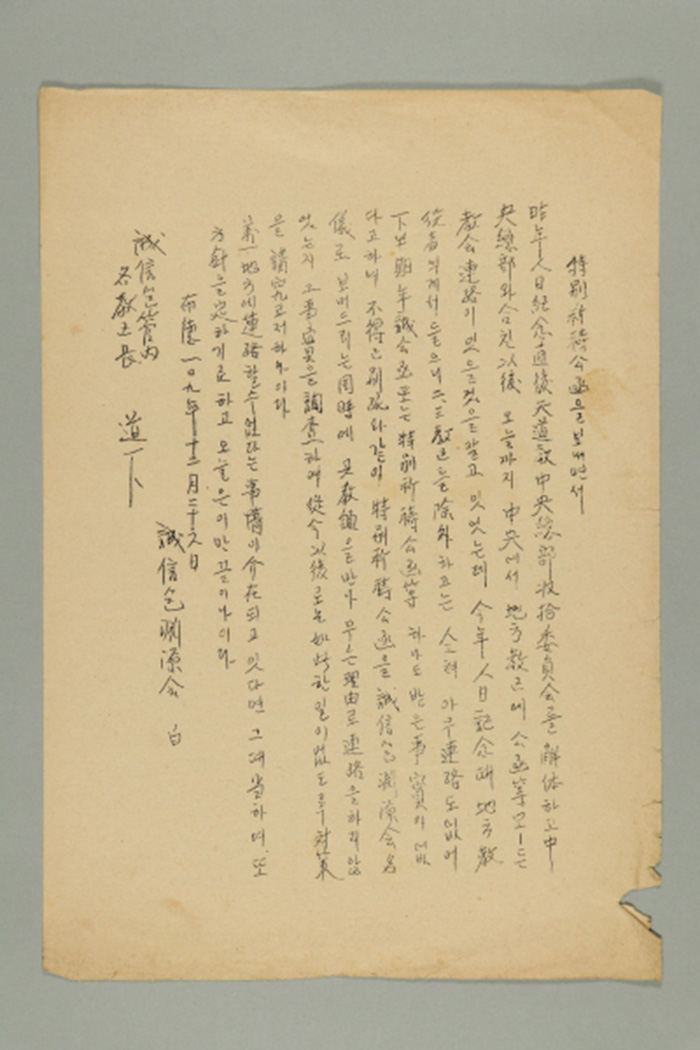 特別祈禱公函을보내면서
昨年人日紀念直後天道敎中央總部收拾委員会를解体하고中
央總部와合친以後 오늘까지 中央에서 地方敎区에公函等모ー든
敎会連絡이잇을것을알고잇엇는데 今年人日記念때地方敎
役者의게서들으니二三敎区를除外하고는 아무連絡도없어
下보 明年誠会函또는特別祈禱公函等 하나도받은事實이없
다고하니 不得已別紙와같이特別祈禱公函을誠信包淵源会名
儀로보내드리는同時에 貴敎鎭을받아무슨理由로連絡을하지않
엇는지 그事實을調査하여從今以後로는如此한일이없도록対策
을講究코저하나이다
萬一地方에連絡할수없다는事情이介在되고잇다면그때當하여또
方針을定하기로하고오늘은이만끝이나이다
布德一〇九年十二月二十六日
誠信包淵源会 白
誠信包管內
各敎区長 道下